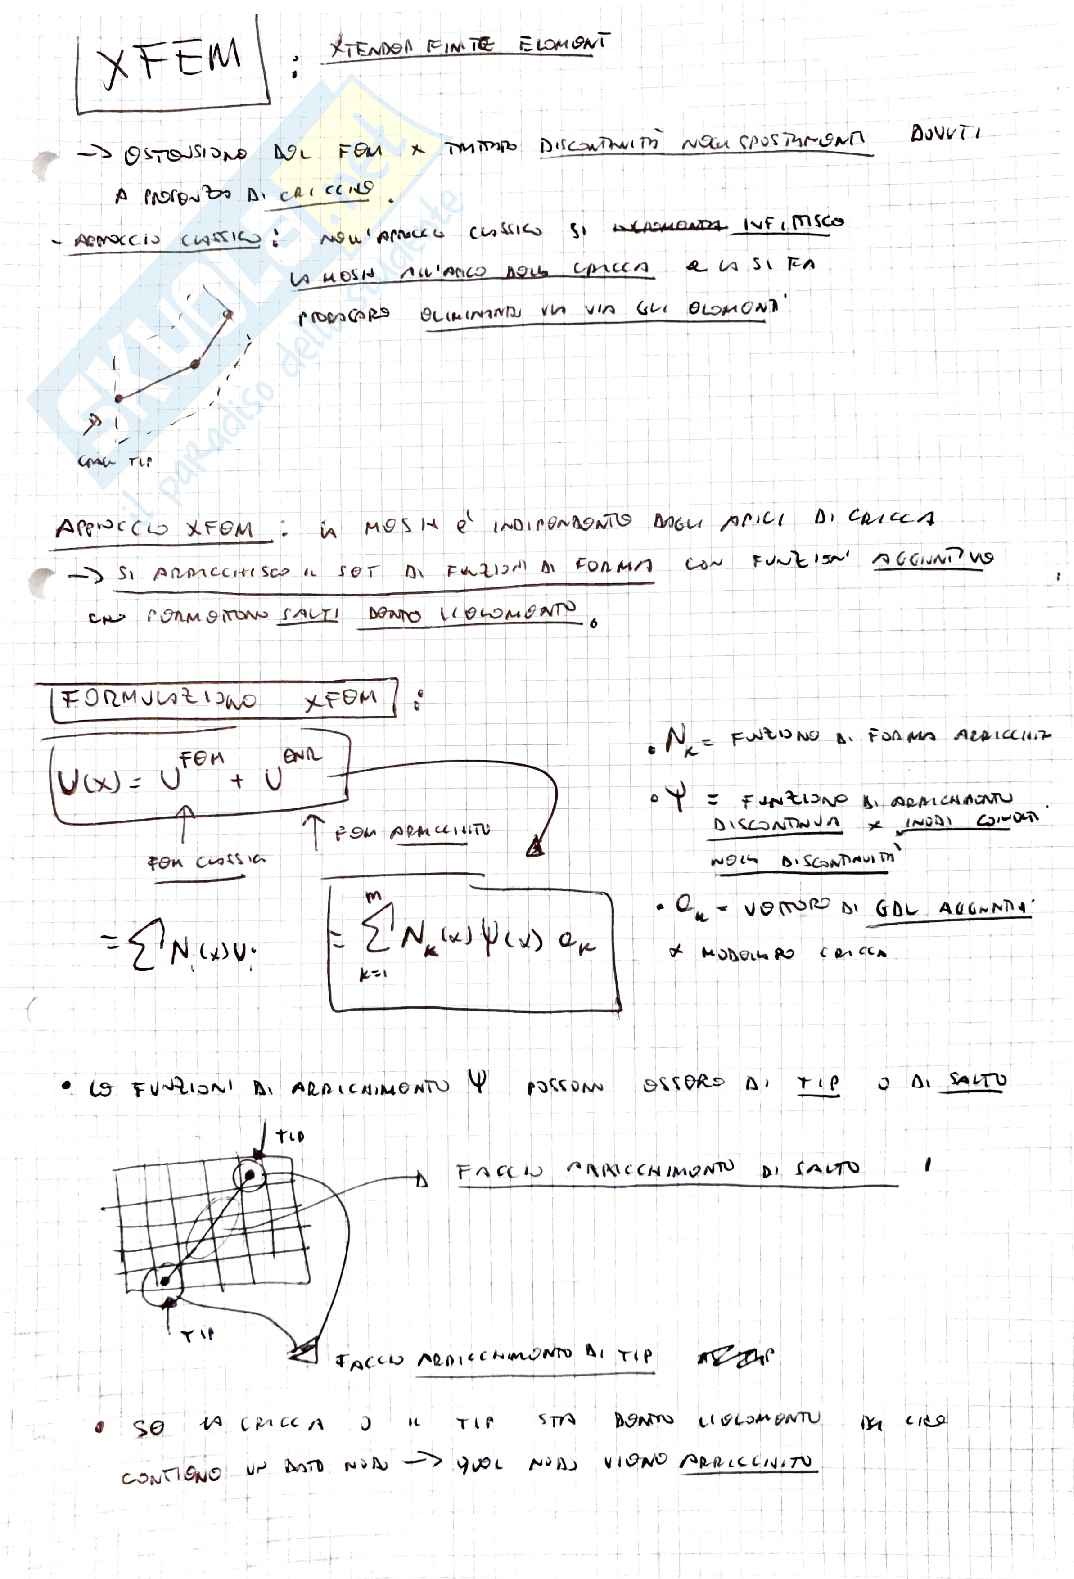 XFEM : XTENDED FINITE ELEMENT
→ ESTENSIONE DEL FEM x TRATTARE DISCONTINUITÀ NEGLI SPOSTAMENTI DOVUTI
A PRESENZA DI CRICCHE.
- APPROCCIO CLASSICO: NELL'APPROCCIO CLASSICO SI INFITTISCE
LA MESH ALL'APICE DELLA CRICCA E LA SI FA
PROPAGARE ELIMINANDO VIA VIA GLI ELEMENTI
CRACK TIP
SKUOLA.net
il paradiso dello studente
APPROCCIO XFEM : LA MESH E' INDIPENDENTE DAGLI APICI DI CRICCA
→ SI ARRICCHISCE IL SET DI FUNZIONI DI FORMA CON FUNZIONI AGGIUNTIVE
CHE PERMETTONO SALTI DENTRO L'ELEMENTO.
FORMULAZIONE XFEM :
U(x) = U^FEM + U^ENR
FEM CLASSICA
FEM ARRICCHITO
= ∑ Nᵢ(x)Uᵢ
= ∑ₖ₌₁^m Nₖ(x) Ψ(x) aₖ
• Nₖ = FUNZIONE DI FORMA ARRICCHITA
• Ψ = FUNZIONE DI ARRICHIMENTO
DISCONTINUA x I NODI COINVOLTI
NELLA DISCONTINUITÀ
• aₖ = VETTORE DI GDL AGGIUNTIVI
x MODELLARE CRICCA
• LE FUNZIONI DI ARRICHIMENTO Ψ POSSONO ESSERE DI TIP O DI SALTO
TIP
FACCIO ARRICCHIMENTO DI SALTO
TIP
FACCIO ARRICCHIMENTO DI TIP
• SE LA CRICCA O IL TIP STA DENTRO L'ELEMENTO CHE
CONTIENE UN DATO NODO → QUEL NODO VIENE ARRICCHITO